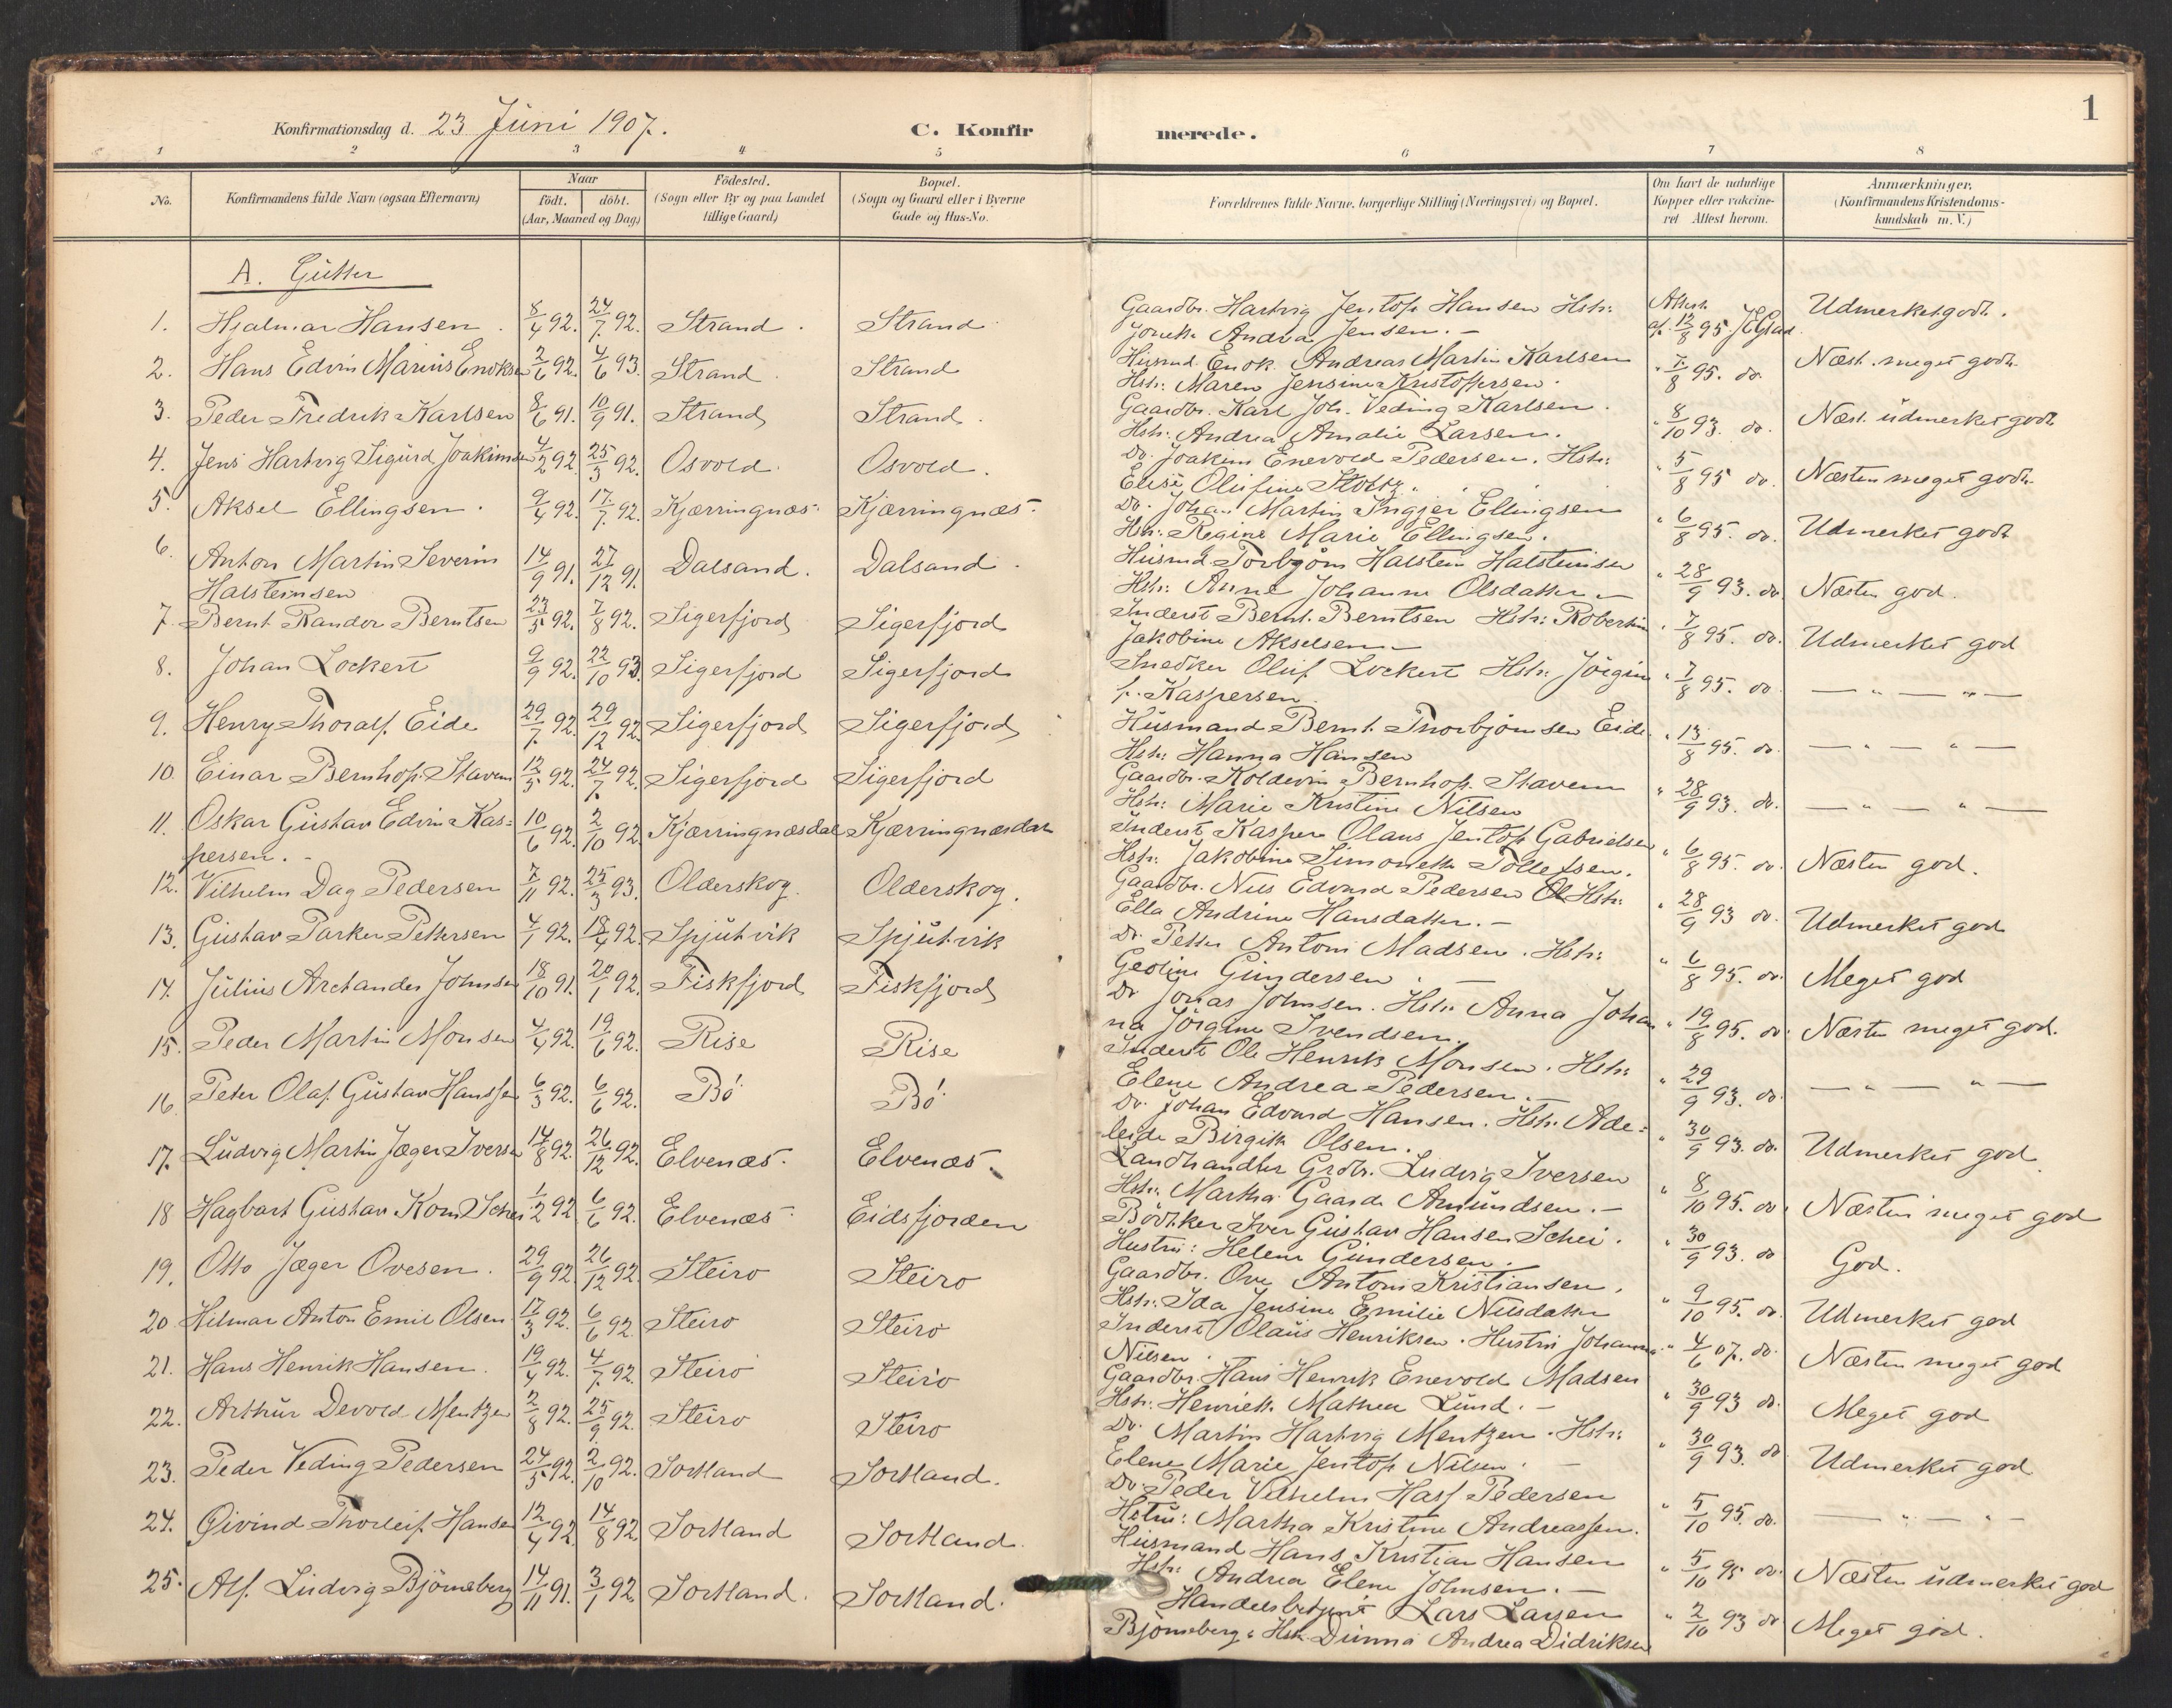 Konfirmationsdag d. 23 Juni 1907.
C. Konfirmerede.
1
1 2 3 4 5 6 7 8
No.
Konfirmandens fulde Navn (ogsaa Efternavn)
Naar
födt. döbt.
(Aar, Maaned og Dag)
Födested.
(Sogn eller By og paa Landet
tillige Gaard)
Bopæl.
(Sogn og Gaard eller i Byerne
Gade og Hus-No.
Forældrenes fulde Navne, borgerlige Stilling (Næringsvei) og Bopæl.
Om havt de naturlige
Kopper eller vakcine-
ret Attest herom.
Anmærkninger.
(Konfirmandens Kristendoms-
kundskab m. V.)
A. Gutter
1. Hjalmar Hansen. 8/4 92. 24/7 92. Strand. Strand. Gaardbr. Hartvig Jentoft Hansen Hstr: Attest Udmerket godt.
Jonette Andrea Jensen. - af 12/8 95.
2. Hans Edvin Marius Enoksen 2/6 92. 4/6 93. Strand. Strand Husmd Enok Andreas Martin Karlsen " 7/8 95. do. Næst. meget godt.
Hstr: Maren Jensine Kristoffersen.
3. Peder Fredrik Karlsen 8/6 91. 10/9 91. Strand Strand. Gaardbr. Karl Joh. Veding Karlsen. " 8/10 93. do. Næst. udmerket godt
Hstr: Andrea Amalie Larsen.
4. Jens Hartvig Sigurd Joakimsen 4/2 92 25/3 92. Osvold. Osvold. Do. Joakim Enevold Pedersen. Hstr: " 5/8 95 do. Næsten meget godt.
Elise Olufine Stoltz.
5. Aksel Ellingsen. 9/4 92. 17/7 92. Kjærringnæs. Kjærringnæs. Do. Johan Martin Ingjer Ellingsen " 6/8 95. do. Udmerket godt
Hstr: Regine Marie Ellingsen.
6. Anton Martin Severin 14/9 91. 27/12 91. Dalsand. Dalsand. Husmd Torbjörn Halstein Halsteinsen " 28/9 93. do. Næsten god.
Halsteinsen Hstr: Anne Johanne Olsdatter -
7. Bernt Randor Berntsen 23/5 92. 7/8 92. Sigerfjord Sigerfjord Inderst Bernt Berntsen Hstr: Robertine " 7/8 95. do. Udmerket god
Jakobine Akselsen -
8. Johan Lockert 9/9 92. 22/10 93. Sigerfjord Sigerfjord Snedker Oluf Lockert Hstr: Jörgine " 7/8 95. do. — " — " —
f. Kaspersen.
9. Henry Thoralf Eide 29/7 92. 29/12 92. Sigerfjord Sigerfjord Husmand Bernt Thorbjörnsen Eide " 13/8 95. do. — " — " —
Hstr: Hanna Hansen
10. Einar Bernhoft Stavem 12/5 92. 24/7 92. Sigerfjord Sigerfjord Gaardbr. Koldevin Bernhoft Stavem " 28/9 93. do. — " — " —
Hstr: Marie Kristine Nilsen
11. Oskar Gustav Edvin Kas= 10/6 92. 2/10 92. Kjærringnæsdal Kjærringnæsdalen Inderst Kasper Olaus Jentoft Gabrielsen " 6/8 95. do. Næsten god.
persen. - Hstr: Jakobine Simonette Tollefsen.
12. Vilhelm Dag Pedersen 7/11 92. 25/3 93. Olderskog. Olderskog. Gaardbr. Nils Edvard Pedersen Hstr: " 28/9 93 do. Udmerket god
Ella Andrine Hansdatter. -
13. Gustav Parker Pettersen 4/1 92. 18/4 92. Spjutvik Spjutvik Do. Petter Antoni Madsen. Hstr: " 6/8 95. do. Meget god
Geoline Gundersen. -
14. Julius Archander Johnsen 18/10 91. 20/1 92. Fiskfjord Fiskfjord Do Jonas Johnsen. Hstr: Anna Johan " 19/8 95. do. Næsten meget god.
na Jörgine Svendsen.
15. Peder Martin Monsen 4/4 92. 19/6 92. Rise Rise Inderst Ole Henrik Monsen. Hstr: " 29/9 93. do. — " — " —
Elene Andrea Pedersen. -
16. Peter Olaf Gustav Hanssen 6/3 92. 6/6 92. Bö Bö Do. Johan Edvard Hansen. Hstr. Ade= " 30/9 93. do. Udmerket god
leide Birgitte Olsen.
17. Ludvig Martin Jæger Iversen 14/8 92. 26/12 92. Elvenæs. Elvenæs. Landhandler Grdbr. Ludvig Iversen " 8/10 95. do. Næsten meget god
Hstr: Martha Gaarda Amundsen. -
18 Hagbart Gustav Schei 1/2 92 6/6 92. Elvenæs. Eidsfjorden Bödtker Iver Gustav Hansen Schei. " 30/9 93. do God.
Hustru: Helene Gundersen.
19. Otto Jæger Ovesen. 29/9 92. 26/12 92. Steiro Steiro Gaardbr. Ove Antoni Kristiansen. " 9/10 95. do. Udmerket god
Hstr: Ida Jensine Emilie Nilsdatter
20 Hilmar Anton Emil Olsen 17/3 92. 6/6 92. Steiro Steiro Inderst Olaus Henriksen. Hustru Johanna " 4/6 07. do. Næsten meget god
Nilsen.
21. Hans Henrik Hansen. 19/4 92. 4/7 92. Steiro Steiro Gaardbr. Hans Henrik Enevold Madsen " 30/9 93 do. Meget god
Hstr. Henriette Mathea Lund. -
22. Arthur Devold Mentzen 2/8 92. 25/9 92. Steiro Steiro Do. Martin Hartvig Mentzen. Hstr: " 30/9 93. do Udmerket god
Elene Marie Jentoft Nilsen. -
23. Peder Veding Pedersen 24/5 92. 2/10 92. Sortland Sortland. Do. Peder Vilhelm Hass Pedersen " 5/10 95. do. — " — " —
Hstru: Martha Kristine Andreassen.
24. Öivind Thorleif Hansen 12/4 92 14/8 92. Sortland Sortland. Husmand Hans Kristian Hansen " 5/10 95 do. Næsten udmerket god
Hstr: Andrea Elene Johnsen. -
25. Alf Ludvig Björnsberg 14/11 91. 3/1 92. Sortland. Sortland. Handelsbetjent Lars Larsen " 2/10 93 do Meget god.
Björnsberg. Hstr. Dunna Andrea Didriksen